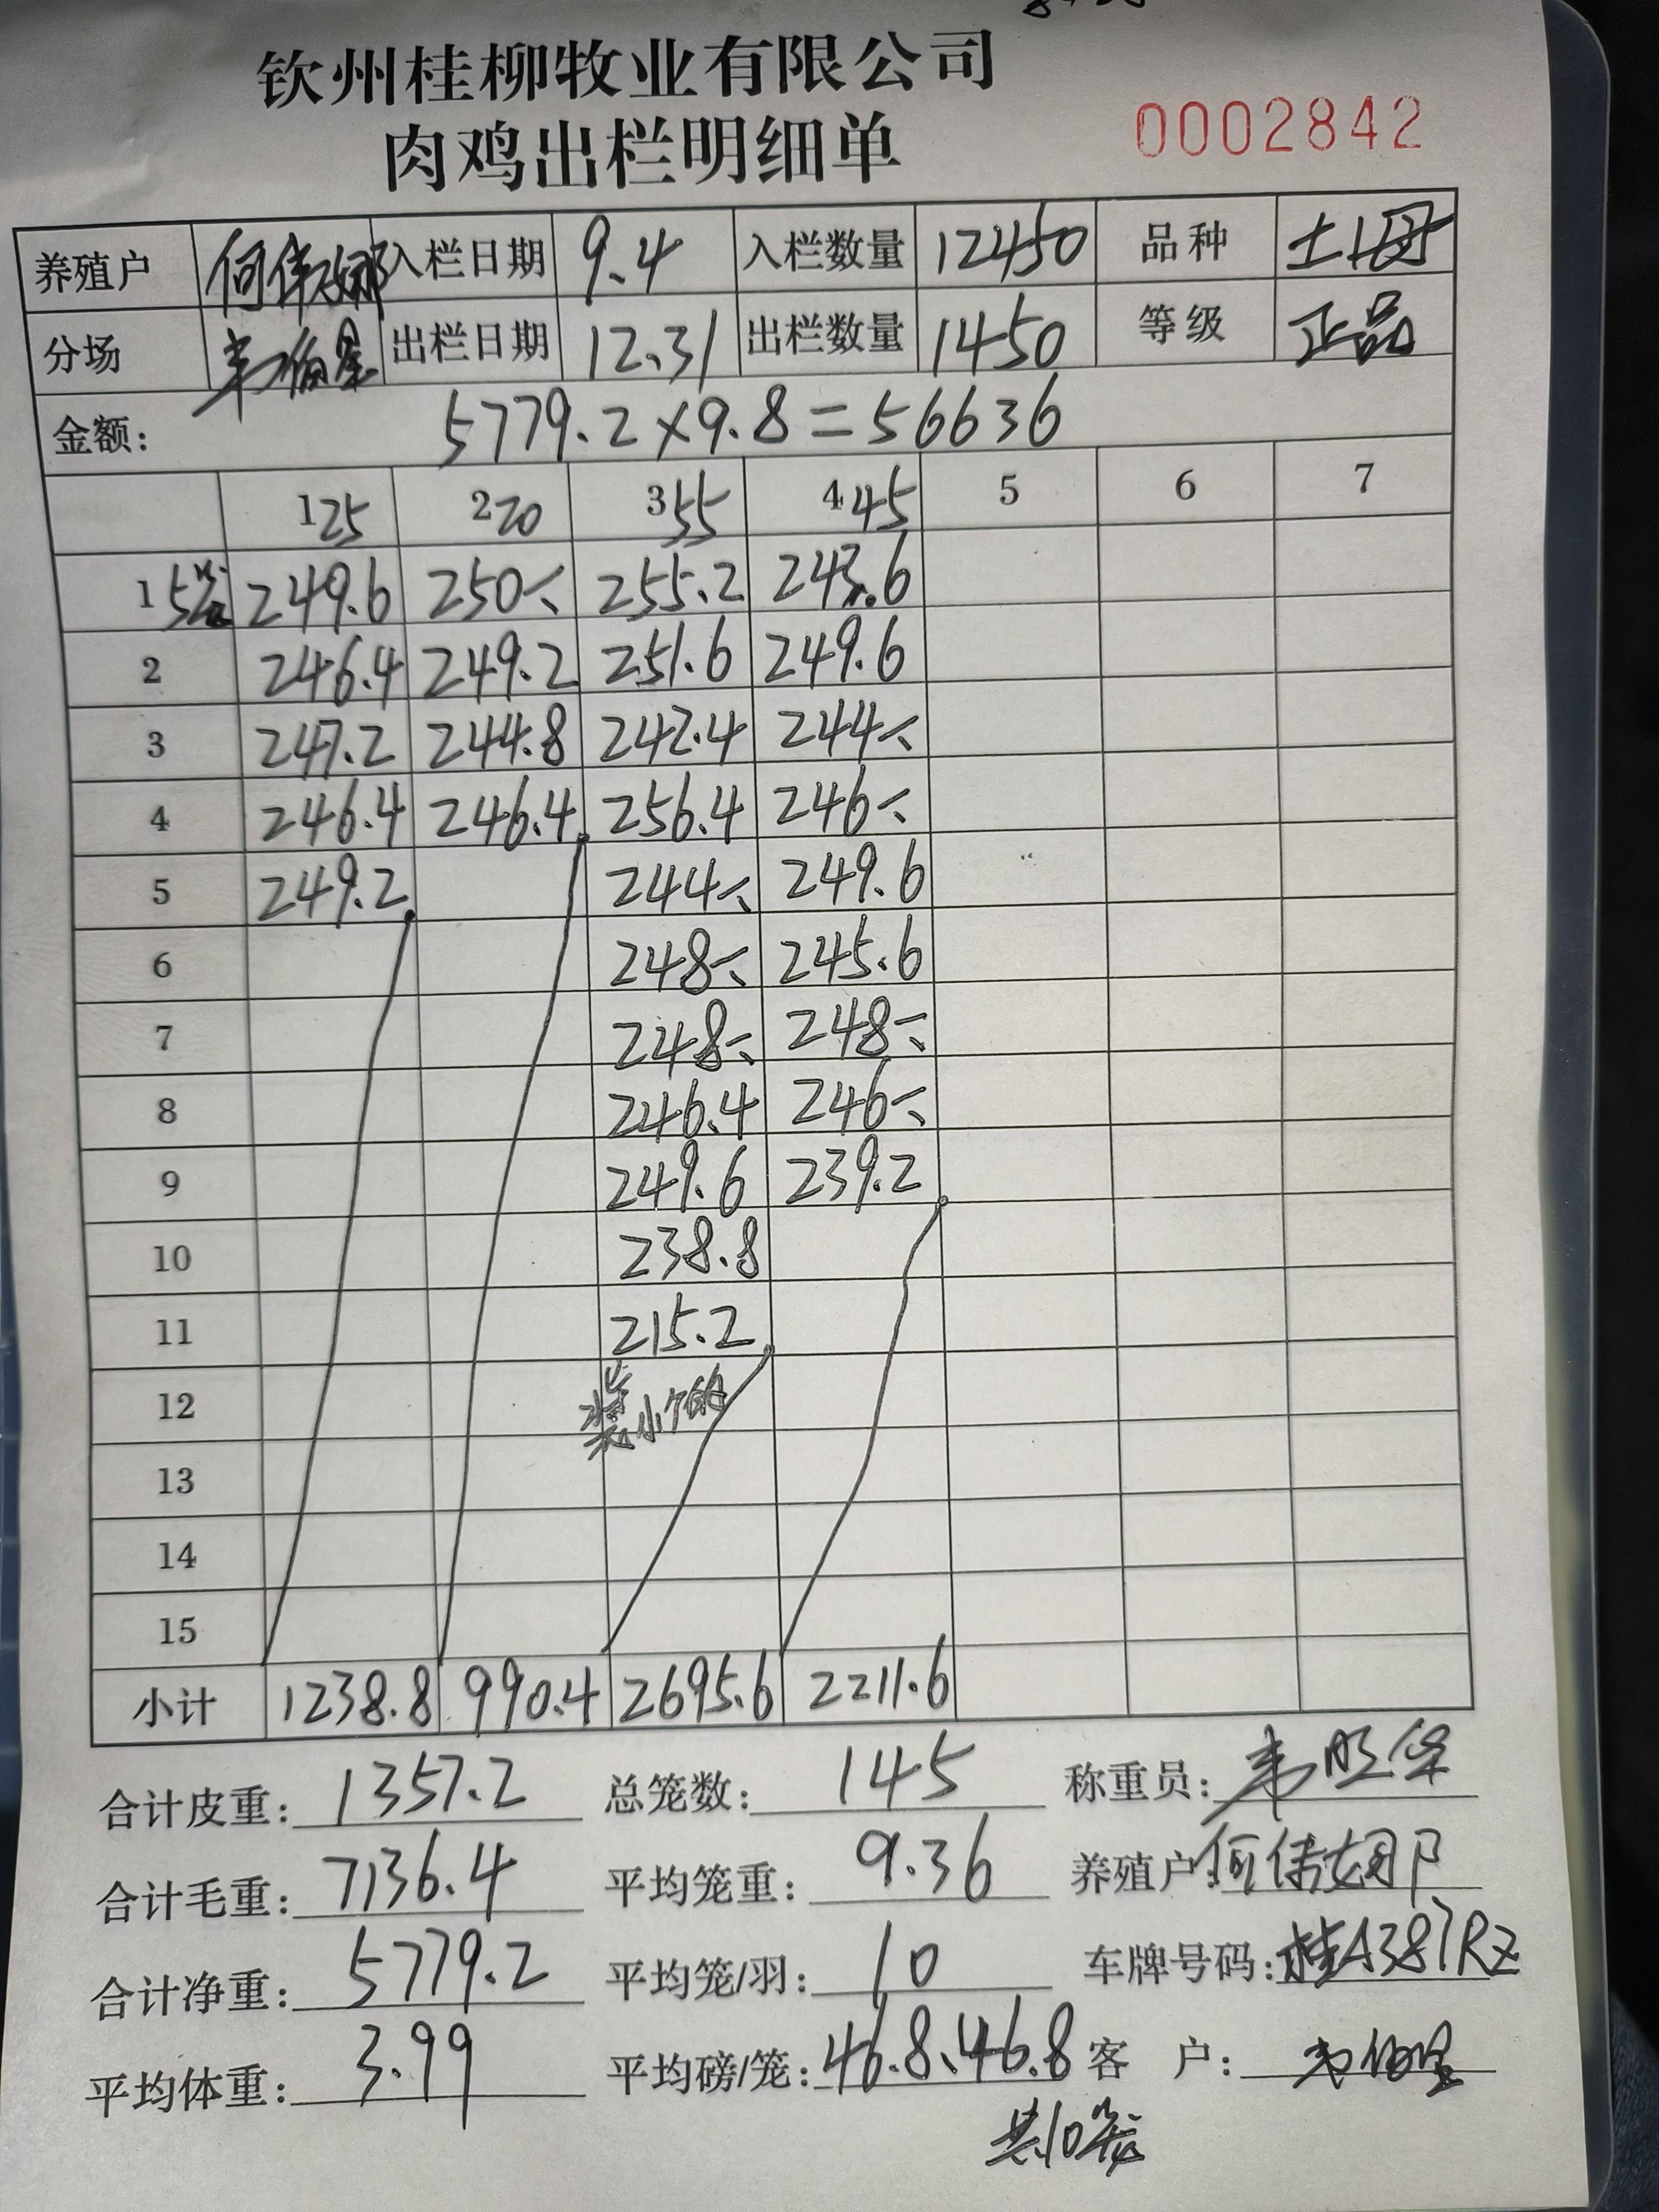 钦州桂柳牧业有限公司
肉鸡出栏明细单
0002842
养殖户 何伟娜 入栏日期 9.4 入栏数量 12450 品种 土
分场 韦伯 出栏日期 12.31 出栏数量 1450 等级 正品
金额: 5779.2×9.8=56636
1 25 2 20 3 55 4 45 5 6 7
1 5笼 249.6 250 255.2 243.6
2 246.4 249.2 251.6 249.6
3 247.2 244.8 242.4 244
4 246.4 246.4 256.4 246
5 249.2 244 249.6
6 248 245.6
7 248 248
8 246.4 246
9 249.6 239.2
10 238.8
11 215.2
12 装小的
13
14
15
小计 1238.8 990.4 2695.6 2211.6
合计皮重: 1357.2 总笼数: 145 称重员: 韦旺华
合计毛重: 7136.4 平均笼重: 9.36 养殖户: 何伟娜
合计净重: 5779.2 平均笼/羽: 10 车牌号码: 桂A387RZ
平均体重: 3.99 平均磅/笼: 46.8、46.8 客 户: 韦伯
共10笼